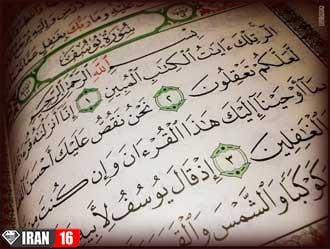 سُورَةُ يُوسُفَ
بِسْمِ اللَّهِ الرَّحْمَٰنِ الرَّحِيمِ
الٓر ۚ تِلْكَ ءَايَٰتُ ٱلْكِتَٰبِ ٱلْمُبِينِ ١ إِنَّآ أَنزَلْنَٰهُ
لَّعَلَّكُمْ تَعْقِلُونَ ٢ نَحْنُ نَقُصُّ عَلَيْكَ أَحْسَنَ
بِمَآ أَوْحَيْنَآ إِلَيْكَ هَٰذَا ٱلْقُرْءَانَ وَإِن كُنتَ مِن
ٱلْغَٰفِلِينَ ٣ إِذْ قَالَ يُوسُفُ لِأَبِيهِ
كَوْكَبًا وَٱلشَّمْسَ وَٱلْقَمَرَ
IRAN 16